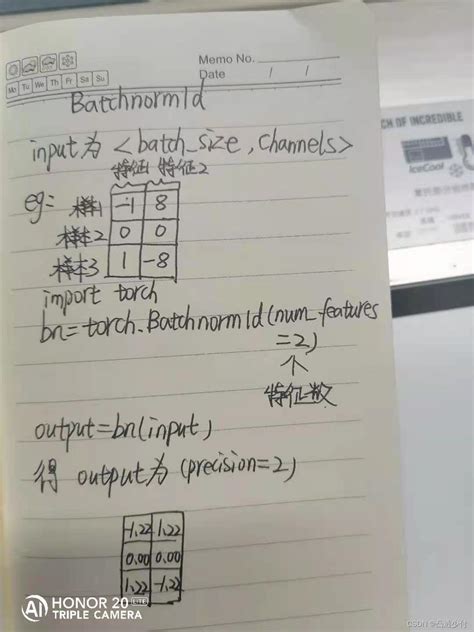 Memo No.
Mo Tu We Th Fr Sa Su
Date / /
Batchnorm1d
input为<batch_size, channels>
特征1 特征2
eg: 样本1 -1 8
样本2 0 0
样本3 1 -8
import torch
bn=torch.Batchnorm1d(num_features
=2)
个
特征数
output=bn(input)
得 output为(precision=2)
-1.22 1.22
0.00 0.00
1.22 -1.22
CH OF INCREDIBLE
IceCool
HONOR 20
TRIPLE CAMERA